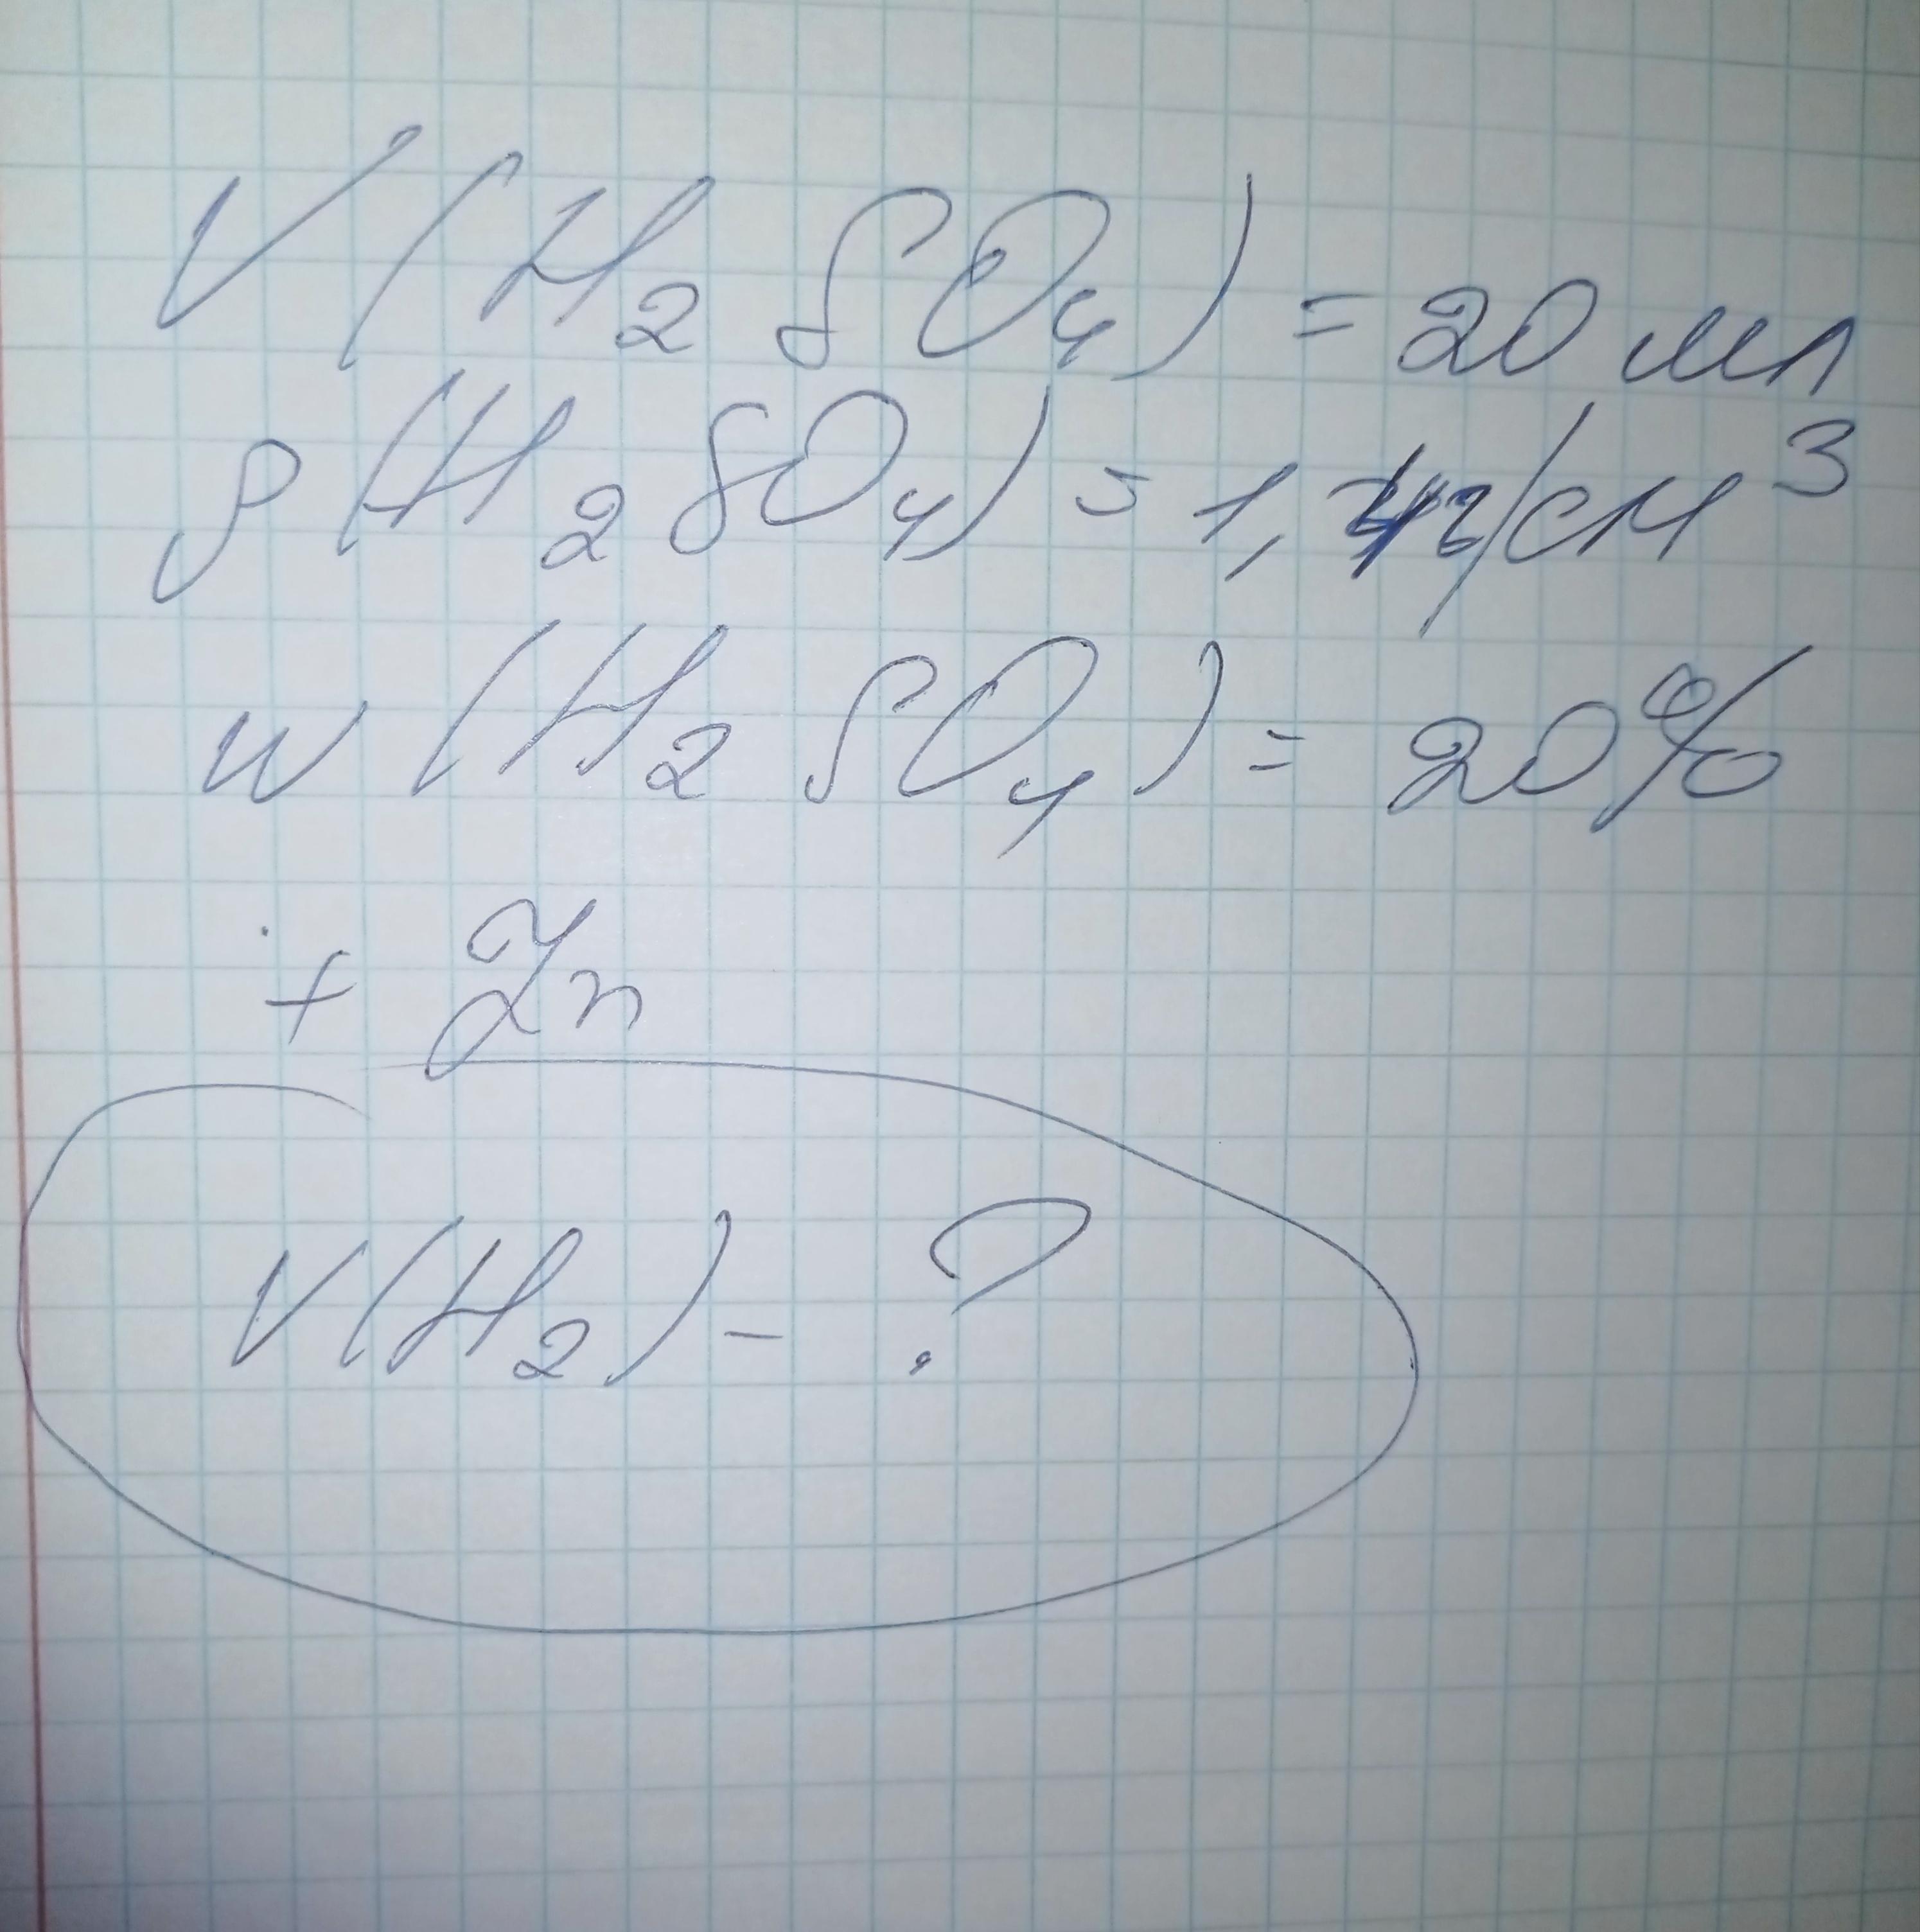 V(H₂SO₄) = 20 мл
ρ(H₂SO₄) = 1,4г/см³
w(H₂SO₄) = 20%
+ Zn
V(H₂) - ?